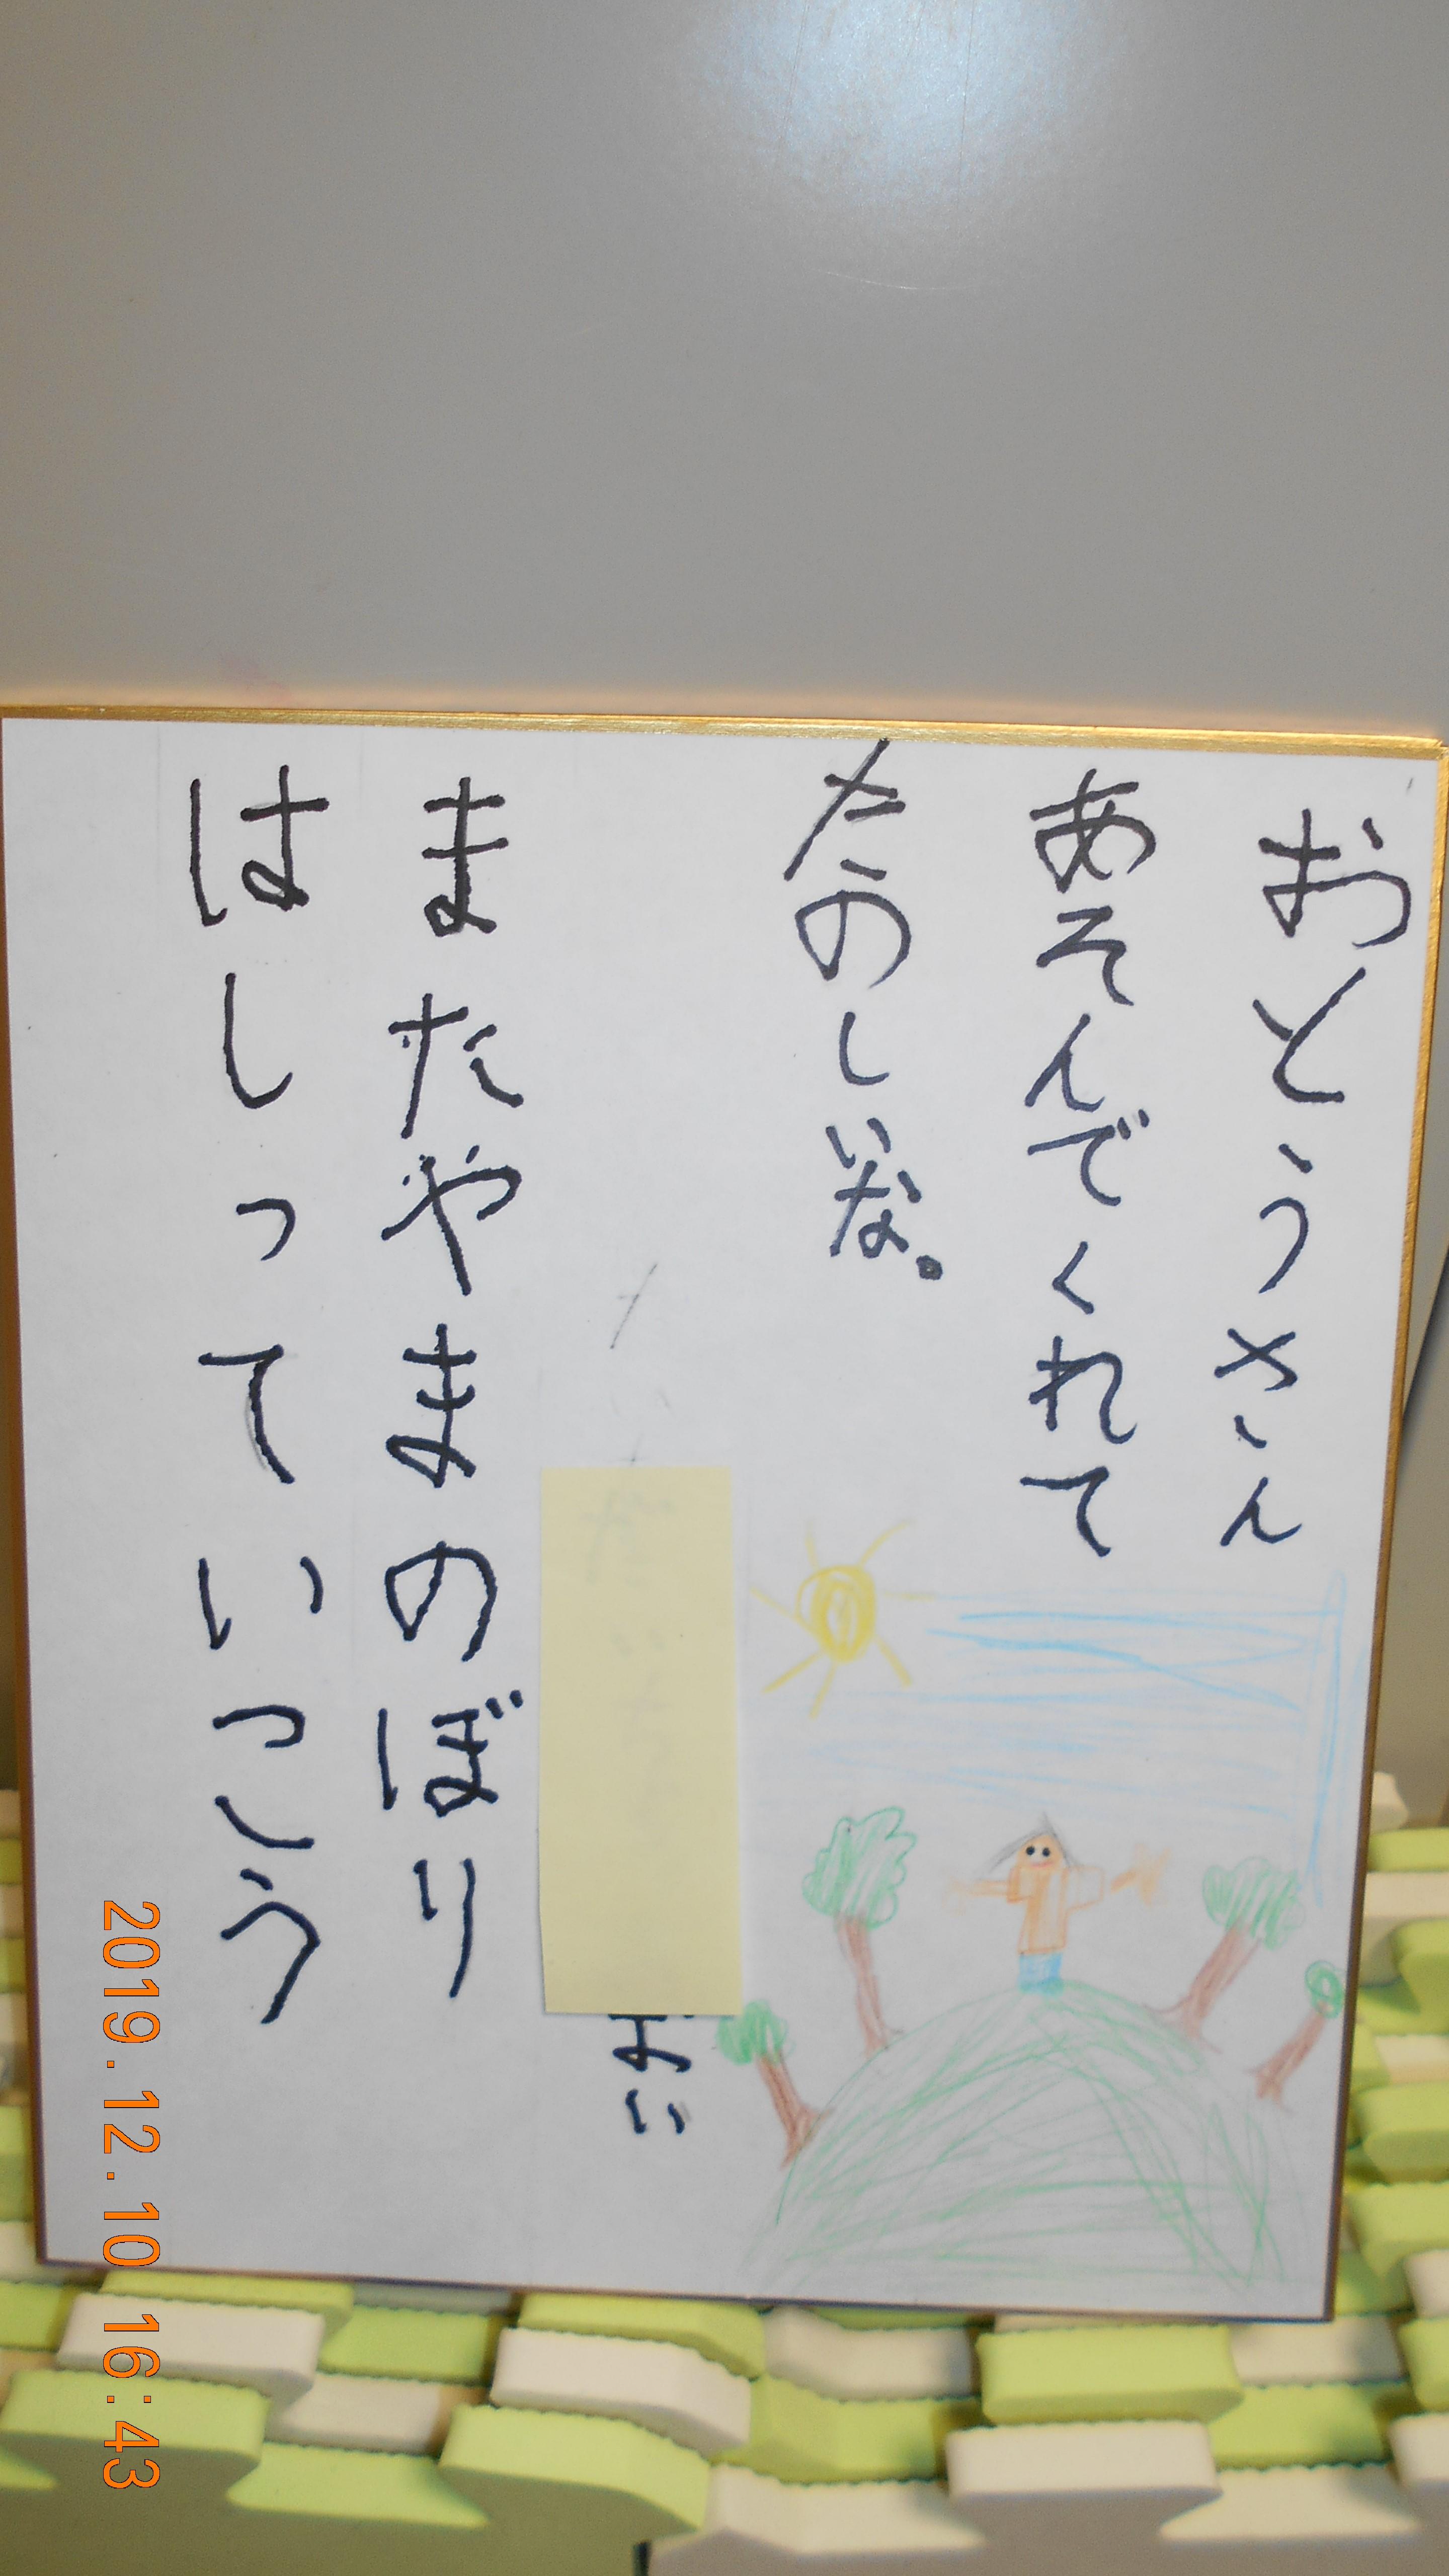 おとうさん
あそんでくれて
たのしいな。
またやまのぼり
はしっていこう
2019.12.10 16:43